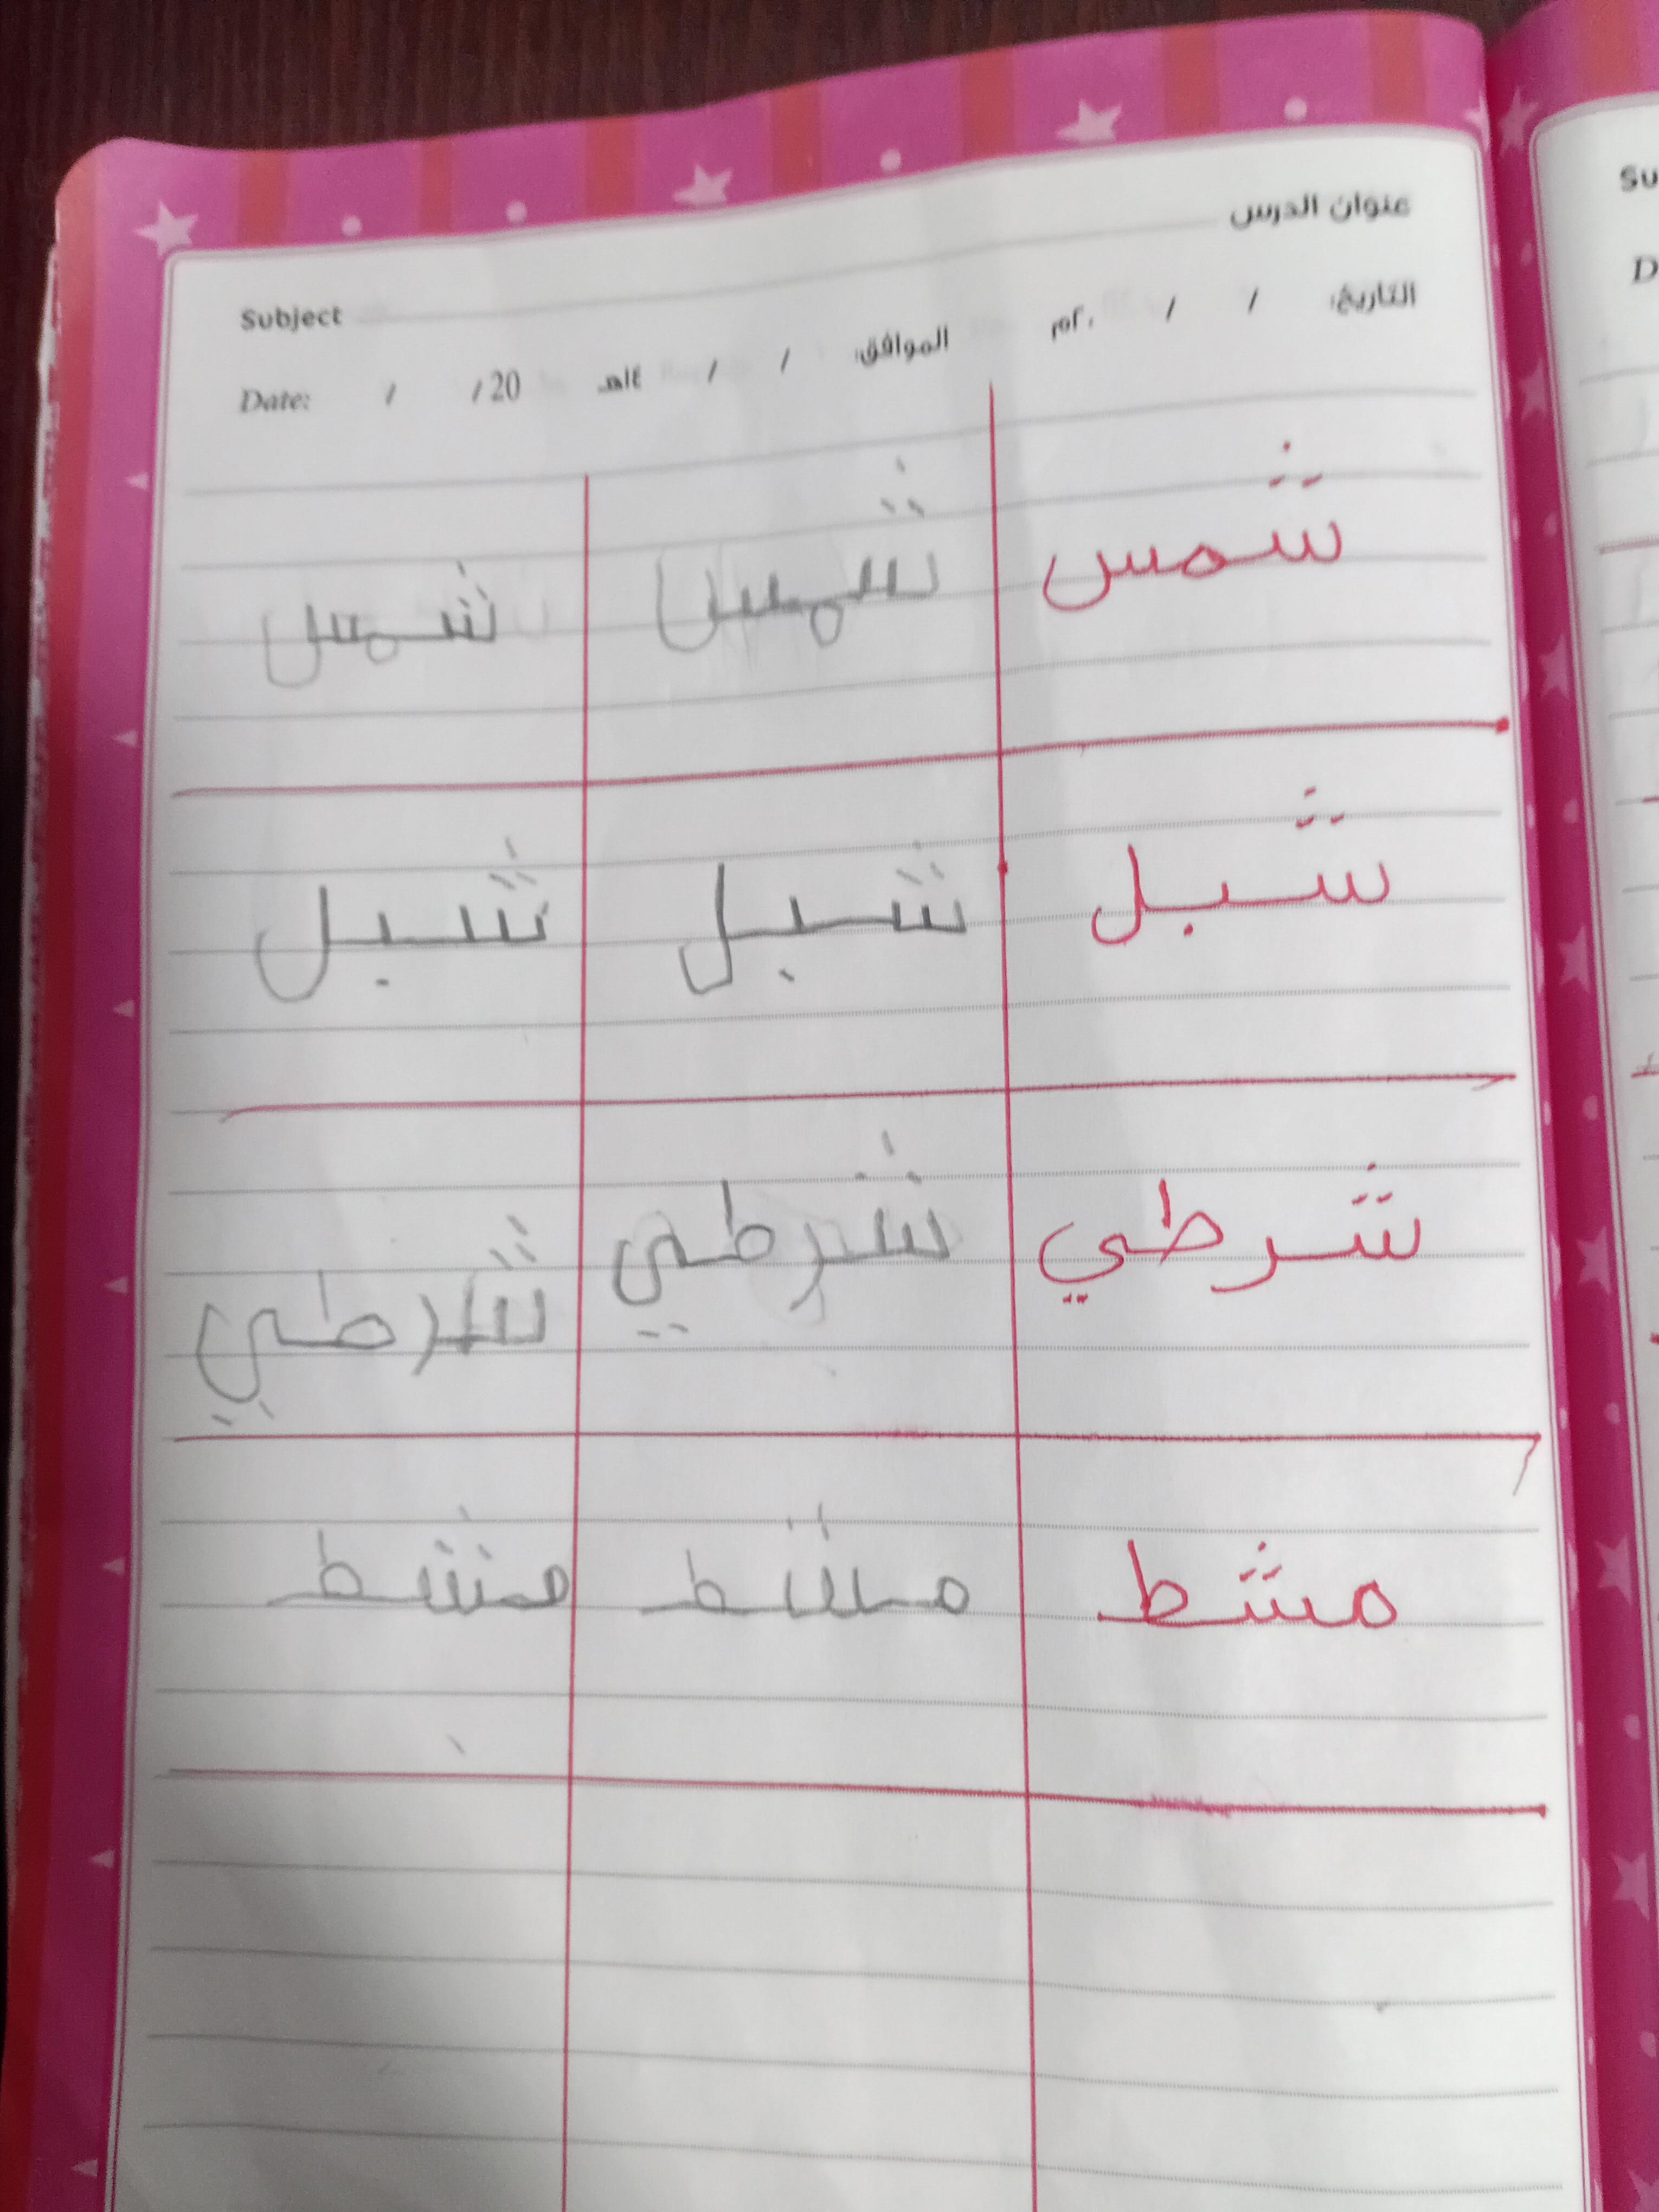 عنوان الدرس
Subject
التاريخ: / / ٢٠م الموافق: / / ١٤هـ
Date: / / 20
شمس شمس شمس
شبل شبل شبل
شرطي شرطي شرطي
مشط مشط مشط
Su
D